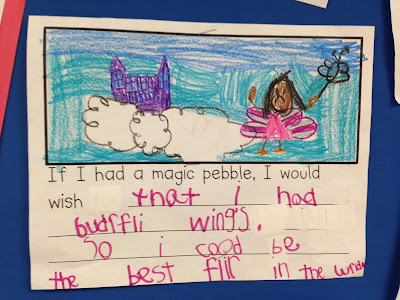 If I had a magic pebble, I would
wish that I had
budffli wings.
So i cood be
the best flir in the wrld